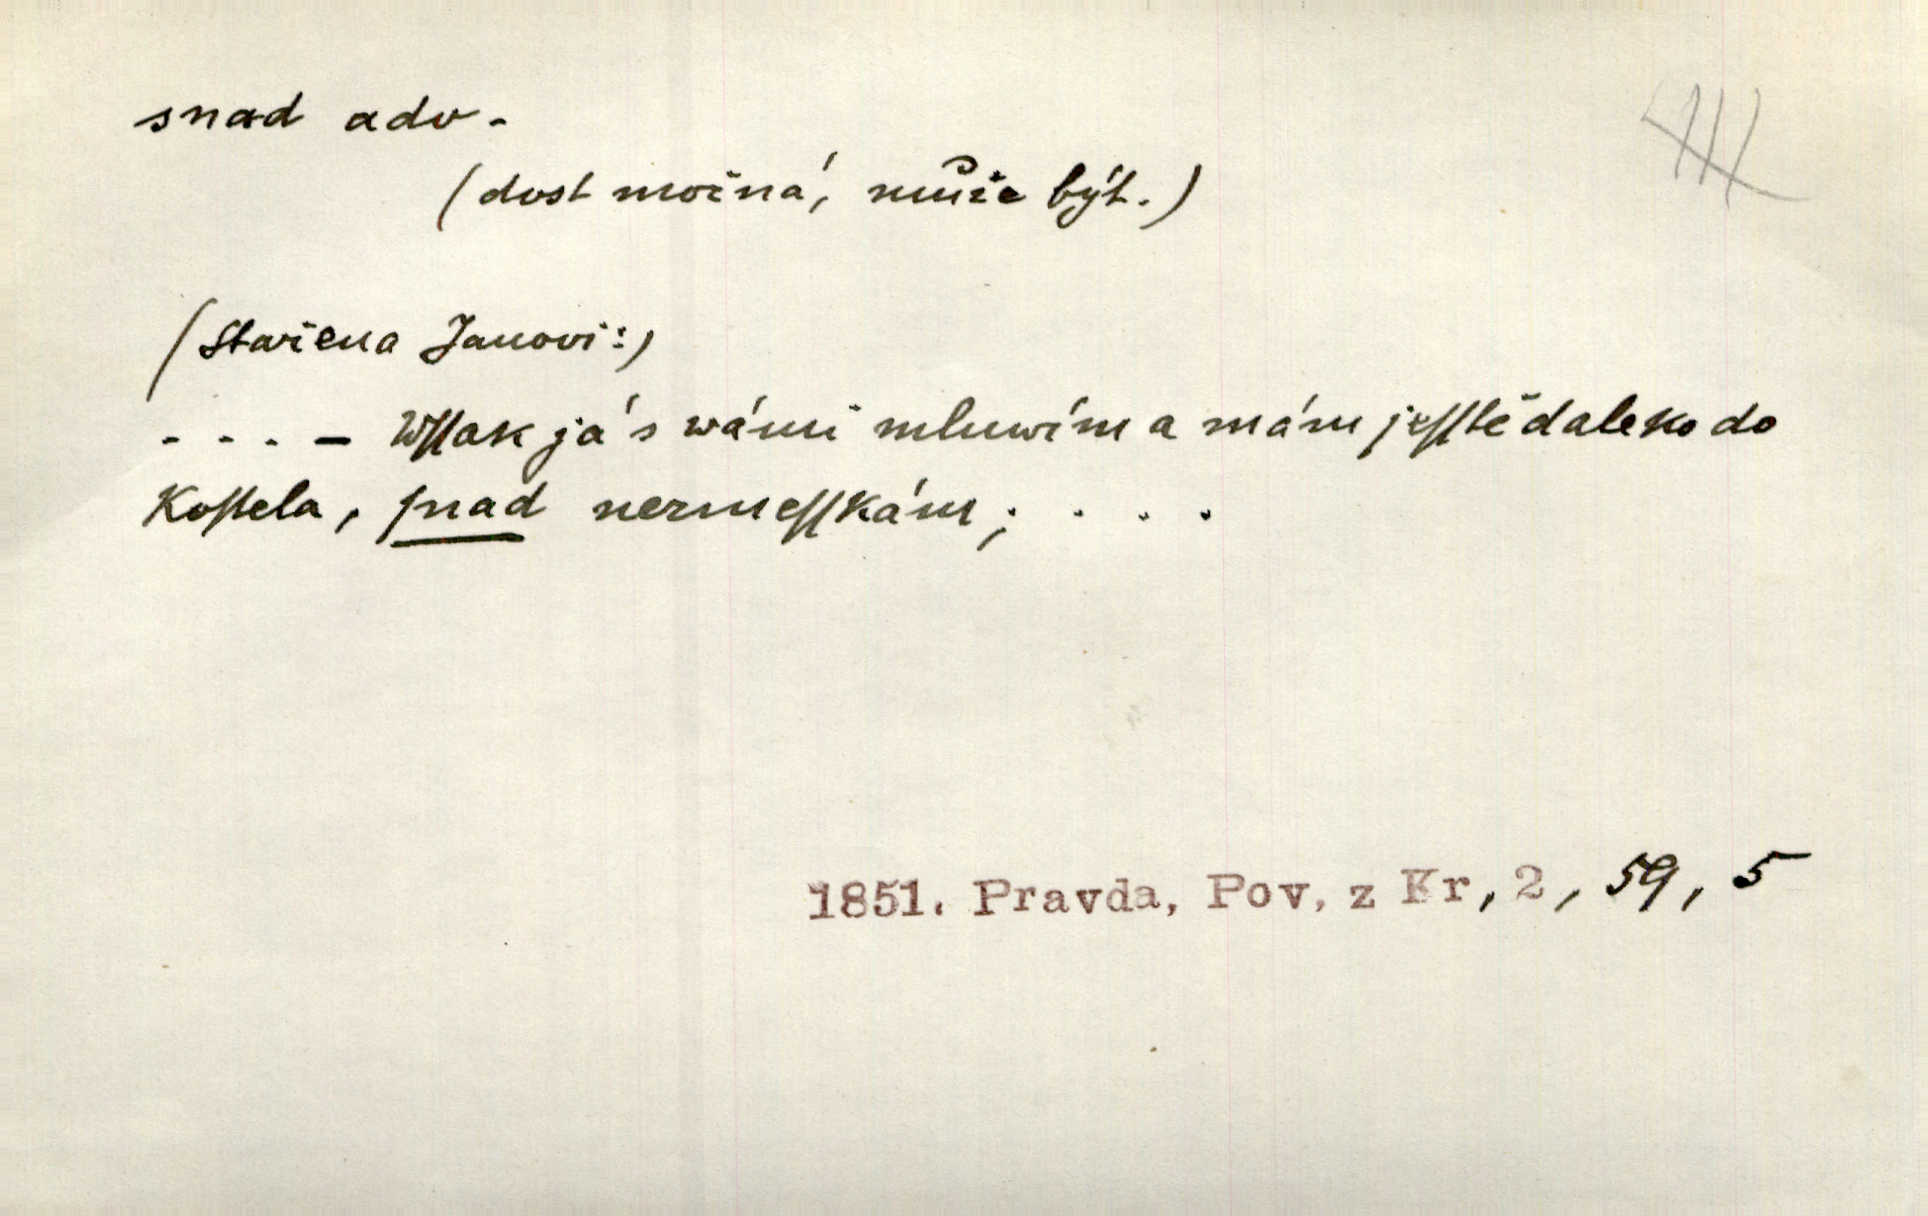 snad adv.
(dost možná, může být.)
(Stařena Janovi:)
. . . . – Wſſak já s wámi mluwím a mám jeſſtě daleko do
Koſtela, ſnad nezmeſſkám; . . .
1851. Pravda, Pov. z Kr, 2, 59, 5